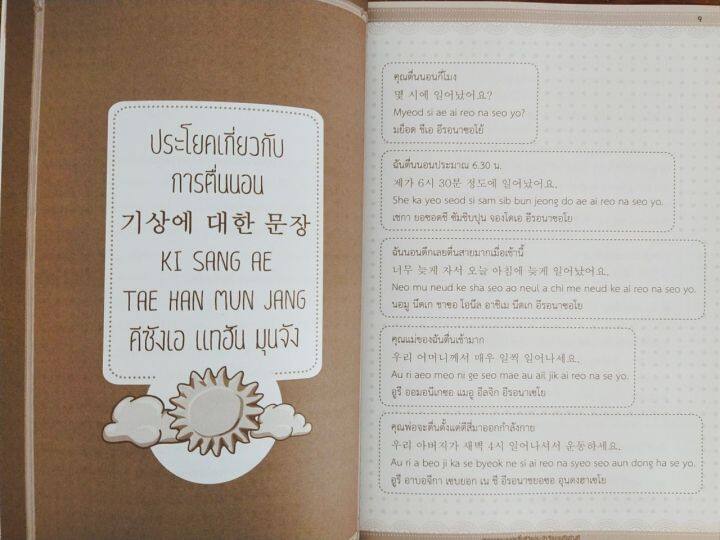 ประโยคเกี่ยวกับ
การตื่นนอน
기상에 대한 문장
KI SANG AE
TAE HAN MUN JANG
คีซังเอ แทฮัน มุนจัง
๑
คุณตื่นนอนกี่โมง
몇 시에 일어났어요?
Myeod si ae ai reo na seo yo?
มย็อด ชีเอ อีรอนาซอโย้
ฉันตื่นนอนประมาณ 6.30 น.
제가 6시 30분 정도에 일어났어요.
She ka yeo seod si sam sib bun jeong do ae ai reo na seo yo.
เชกา ยอซอดชี ซัมชิบปุน จองโดเอ อีรอนาซอโย
ฉันนอนดึกเลยตื่นสายมากเมื่อเช้านี้
너무 늦게 자서 오늘 아침에 늦게 일어났어요.
Neo mu neud ke sha seo ao neul a chi me neud ke ai reo na seo yo.
นอมู นึดเก ชาซอ โอนึล อาชิเม นึดเก อีรอนาซอโย
คุณแม่ของฉันตื่นเช้ามาก
우리 어머니께서 매우 일찍 일어나세요.
Au ri aeo meo ni ge seo mae au ail jik ai reo na se yo.
อูรี ออมอนีเกซอ แมอู อีลจิก อีรอนาเซโย
คุณพ่อจะตื่นตั้งแต่ตีสี่มาออกกำลังกาย
우리 아버지가 새벽 4시 일어나셔서 운동하세요.
Au ri a beo ji ka se byeok ne si ai reo na syeo seo aun dong ha se yo.
อูรี อาบอจีกา เซบยอก เน ชี อีรอนาชยอซอ อุนดงฮาเซโย